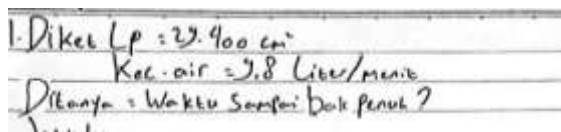 1. Diket Lp : 29.400 cm²
Kec. air = 9.8 Liter/menit
Ditanya = Waktu Sampai bak penuh ?